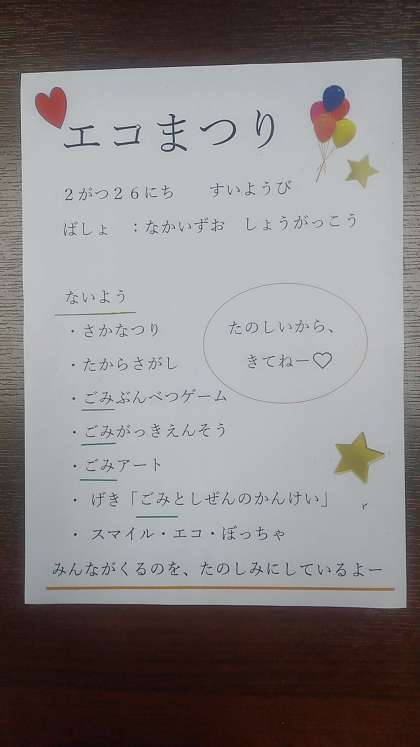 エコまつり
２がつ２６にち　　すいようび
ばしょ　：なかいずお　しょうがっこう
ないよう
・さかなつり
たのしいから、
きてねー♡
・たからさがし
・ごみぶんべつゲーム
・ごみがっきえんそう
・ごみアート
・ げき「ごみとしぜんのかんけい」
・ スマイル・エコ・ぼっちゃ
みんながくるのを、たのしみにしているよー